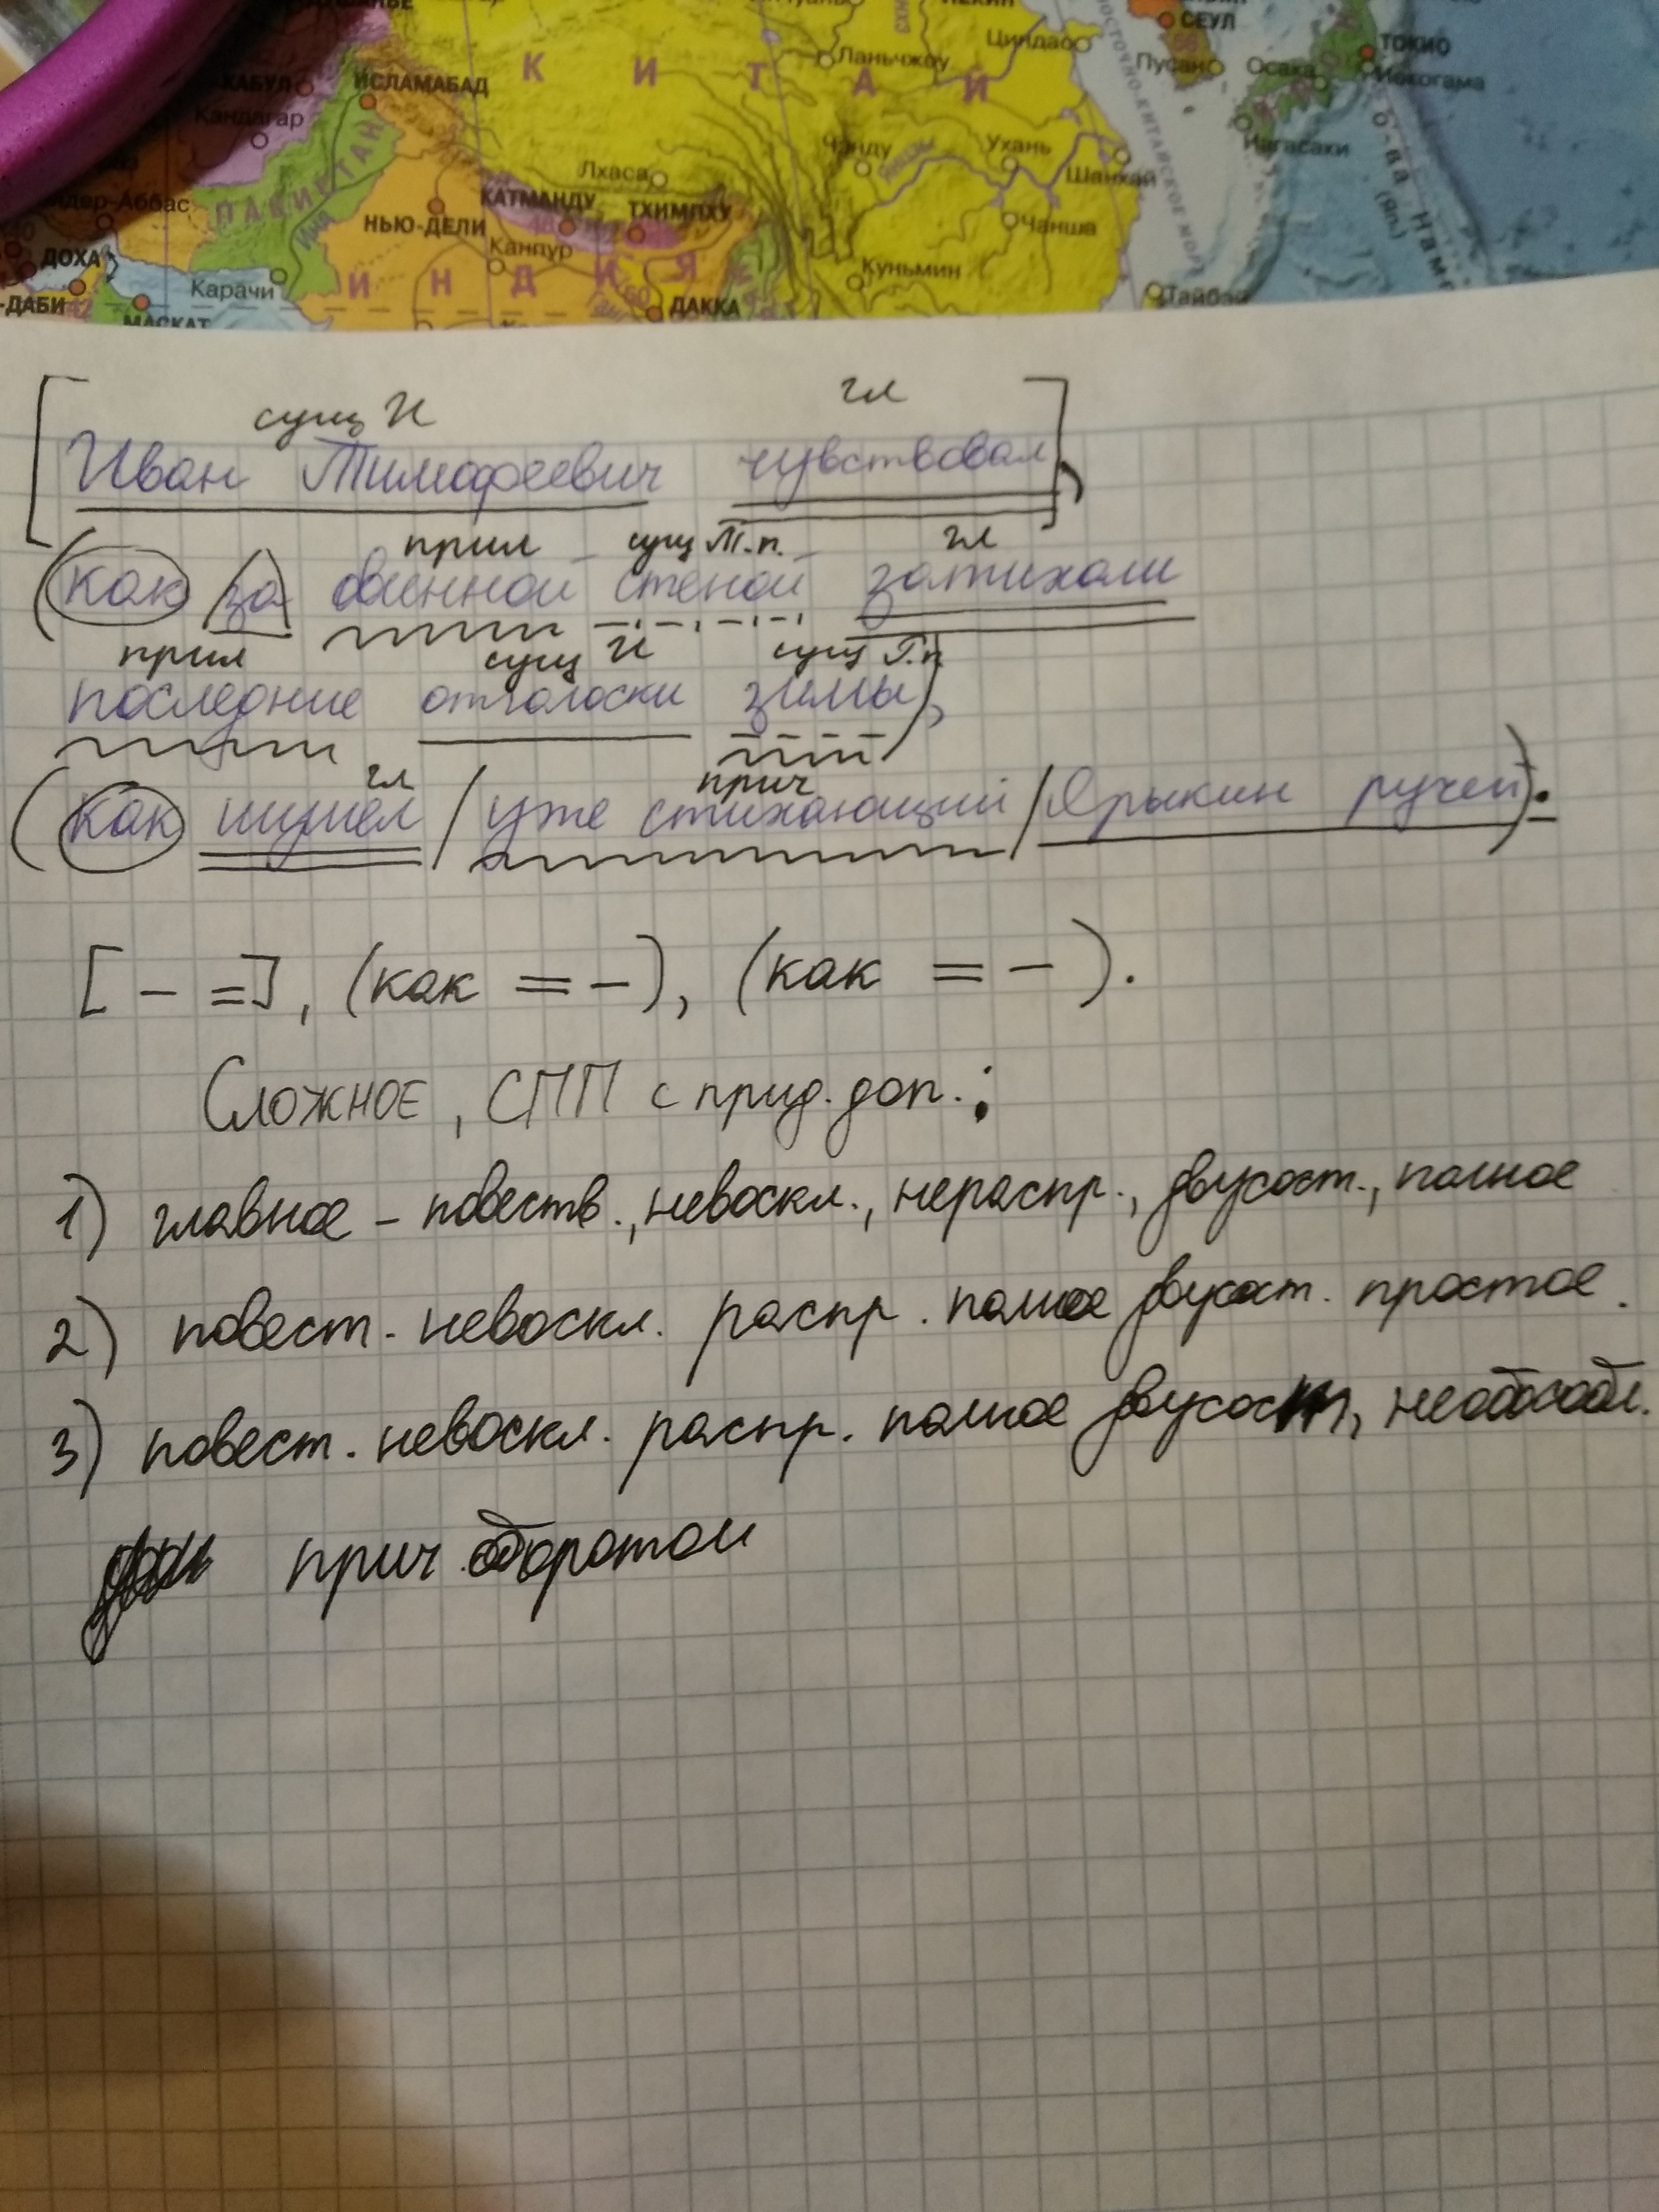 СЕУЛ
ТОКИО
К И Т А Й
Ланьчжоу
Циндао
Пусан
Осака
Иокогама
ХАБУЛ
ИСЛАМАБАД
Кандагар
Чэнду
Ухань
Нагасаки
Лхаса
Шанхай
ПАКИСТАН
КАТМАНДУ
ТХИМПХУ
НЬЮ-ДЕЛИ
Чанша
Канпур
ДОХА
Куньмин
Карачи
И Н Д И Я
-ДАБИ
ДАККА
Тайбэй
МАСКАТ
сущ И гл
[Иван Тимофеевич чувствовал],
прил сущ Т.п. гл
(как за овинной стеной затихали
прил сущ И сущ Р.п.
последние отголоски зимы),
гл прич
(как шумел / уже стихающий / Ярыкин ручей).
[ – =], (как = –), (как = –).
Сложное, СПП с прид. доп.:
1) главное – повеств., невоскл., нераспр., двусост., полное
2) повест. невоскл. распр. полное двусост. простое.
3) повест. невоскл. распр. полное двусост, необособл.
прич. оборотом